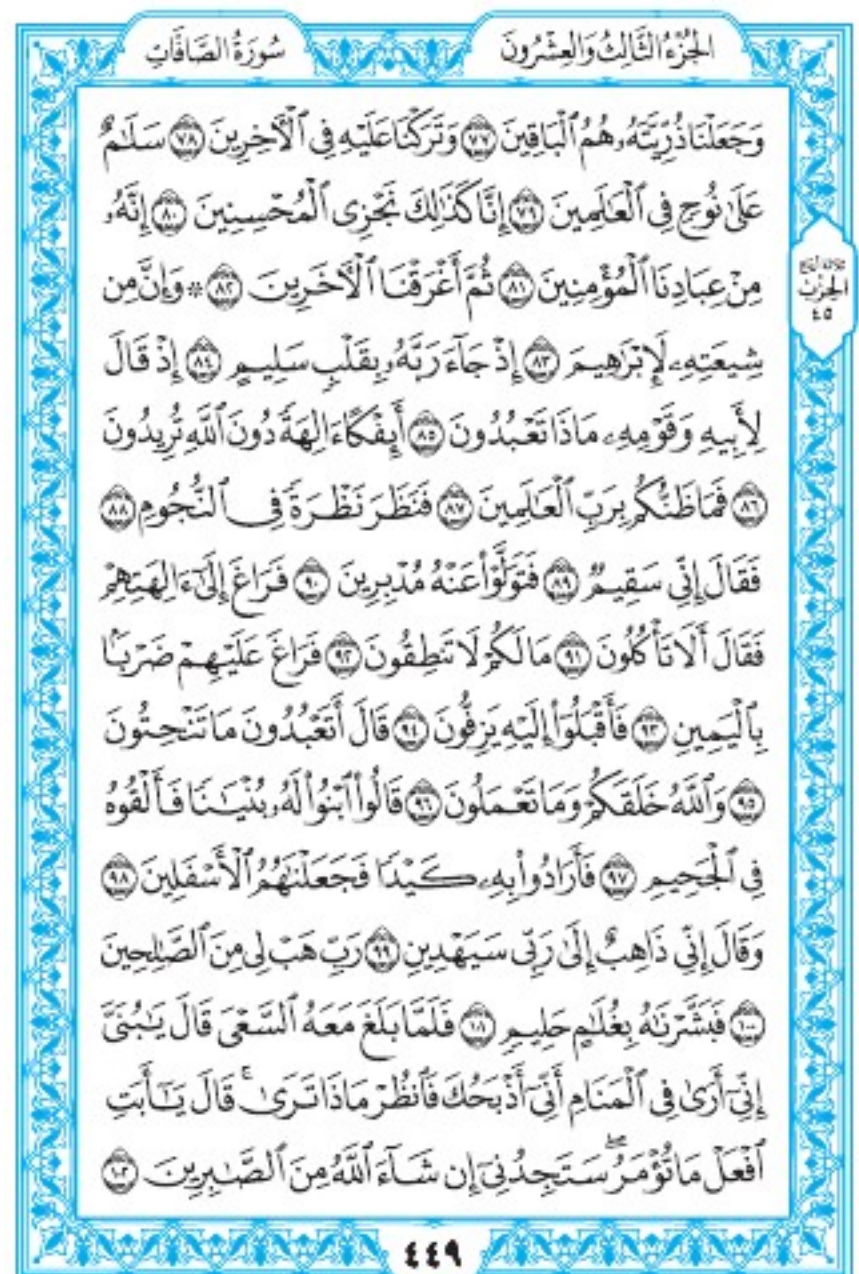 الجُزْءُ الثَّالِثُ وَالعِشْرُونَ
سُورَةُ الصَّافَّاتِ
وَجَعَلْنَا ذُرِّيَّتَهُۥ هُمُ ٱلْبَاقِينَ ٧٧ وَتَرَكْنَا عَلَيْهِ فِى ٱلْأَخِرِينَ ٧٨ سَلَٰمٌ
عَلَىٰ نُوحٍ فِى ٱلْعَٰلَمِينَ ٧٩ إِنَّا كَذَٰلِكَ نَجْزِى ٱلْمُحْسِنِينَ ٨٠ إِنَّهُۥ
مِنْ عِبَادِنَا ٱلْمُؤْمِنِينَ ٨١ ثُمَّ أَغْرَقْنَا ٱلْأَخَرِينَ ٨٢ * وَإِنَّ مِن
شِيعَتِهِۦ لَإِبْرَٰهِيمَ ٨٣ إِذْ جَآءَ رَبَّهُۥ بِقَلْبٍ سَلِيمٍ ٨٤ إِذْ قَالَ
لِأَبِيهِ وَقَوْمِهِۦ مَاذَا تَعْبُدُونَ ٨٥ أَئِفْكًا ءَالِهَةً دُونَ ٱللَّهِ تُرِيدُونَ
٨٦ فَمَا ظَنُّكُم بِرَبِّ ٱلْعَٰلَمِينَ ٨٧ فَنَظَرَ نَظْرَةً فِى ٱلنُّجُومِ ٨٨
فَقَالَ إِنِّى سَقِيمٌ ٨٩ فَتَوَلَّوْا۟ عَنْهُ مُدْبِرِينَ ٩٠ فَرَاغَ إِلَىٰٓ ءَالِهَتِهِمْ
فَقَالَ أَلَا تَأْكُلُونَ ٩١ مَا لَكُمْ لَا تَنطِقُونَ ٩٢ فَرَاغَ عَلَيْهِمْ ضَرْبًۢا
بِٱلْيَمِينِ ٩٣ فَأَقْبَلُوٓا۟ إِلَيْهِ يَزِفُّونَ ٩٤ قَالَ أَتَعْبُدُونَ مَا تَنْحِتُونَ
٩٥ وَٱللَّهُ خَلَقَكُمْ وَمَا تَعْمَلُونَ ٩٦ قَالُوا۟ ٱبْنُوا۟ لَهُۥ بُنْيَٰنًا فَأَلْقُوهُ
فِى ٱلْجَحِيمِ ٩٧ فَأَرَادُوا۟ بِهِۦ كَيْدًا فَجَعَلْنَٰهُمُ ٱلْأَسْفَلِينَ ٩٨
وَقَالَ إِنِّى ذَاهِبٌ إِلَىٰ رَبِّى سَيَهْدِينِ ٩٩ رَبِّ هَبْ لِى مِنَ ٱلصَّٰلِحِينَ
١٠٠ فَبَشَّرْنَٰهُ بِغُلَٰمٍ حَلِيمٍ ١٠١ فَلَمَّا بَلَغَ مَعَهُ ٱلسَّعْىَ قَالَ يَٰبُنَىَّ
إِنِّىٓ أَرَىٰ فِى ٱلْمَنَامِ أَنِّىٓ أَذْبَحُكَ فَٱنظُرْ مَاذَا تَرَىٰ ۚ قَالَ يَٰٓأَبَتِ
ٱفْعَلْ مَا تُؤْمَرُ ۖ سَتَجِدُنِىٓ إِن شَآءَ ٱللَّهُ مِنَ ٱلصَّٰبِرِينَ ١٠٢
الحِزْب
٤٥
٤٤٩